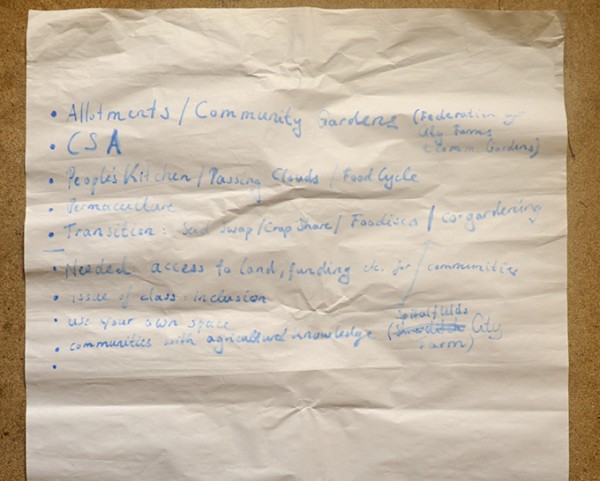 • Allotments / Community Gardens (Federation of
City Farms
& Comm. Gardens)
• CSA
• People's Kitchen / Passing Clouds / Food Cycle
• Permaculture
• Transition: Seed swap / Crop Share / Foodisea / co-gardening
• Needed access to land, funding etc. for communities
• issue of class inclusion
• use your own space
• communities with agricultural knowledge (Spitalfields City
Farm)
•